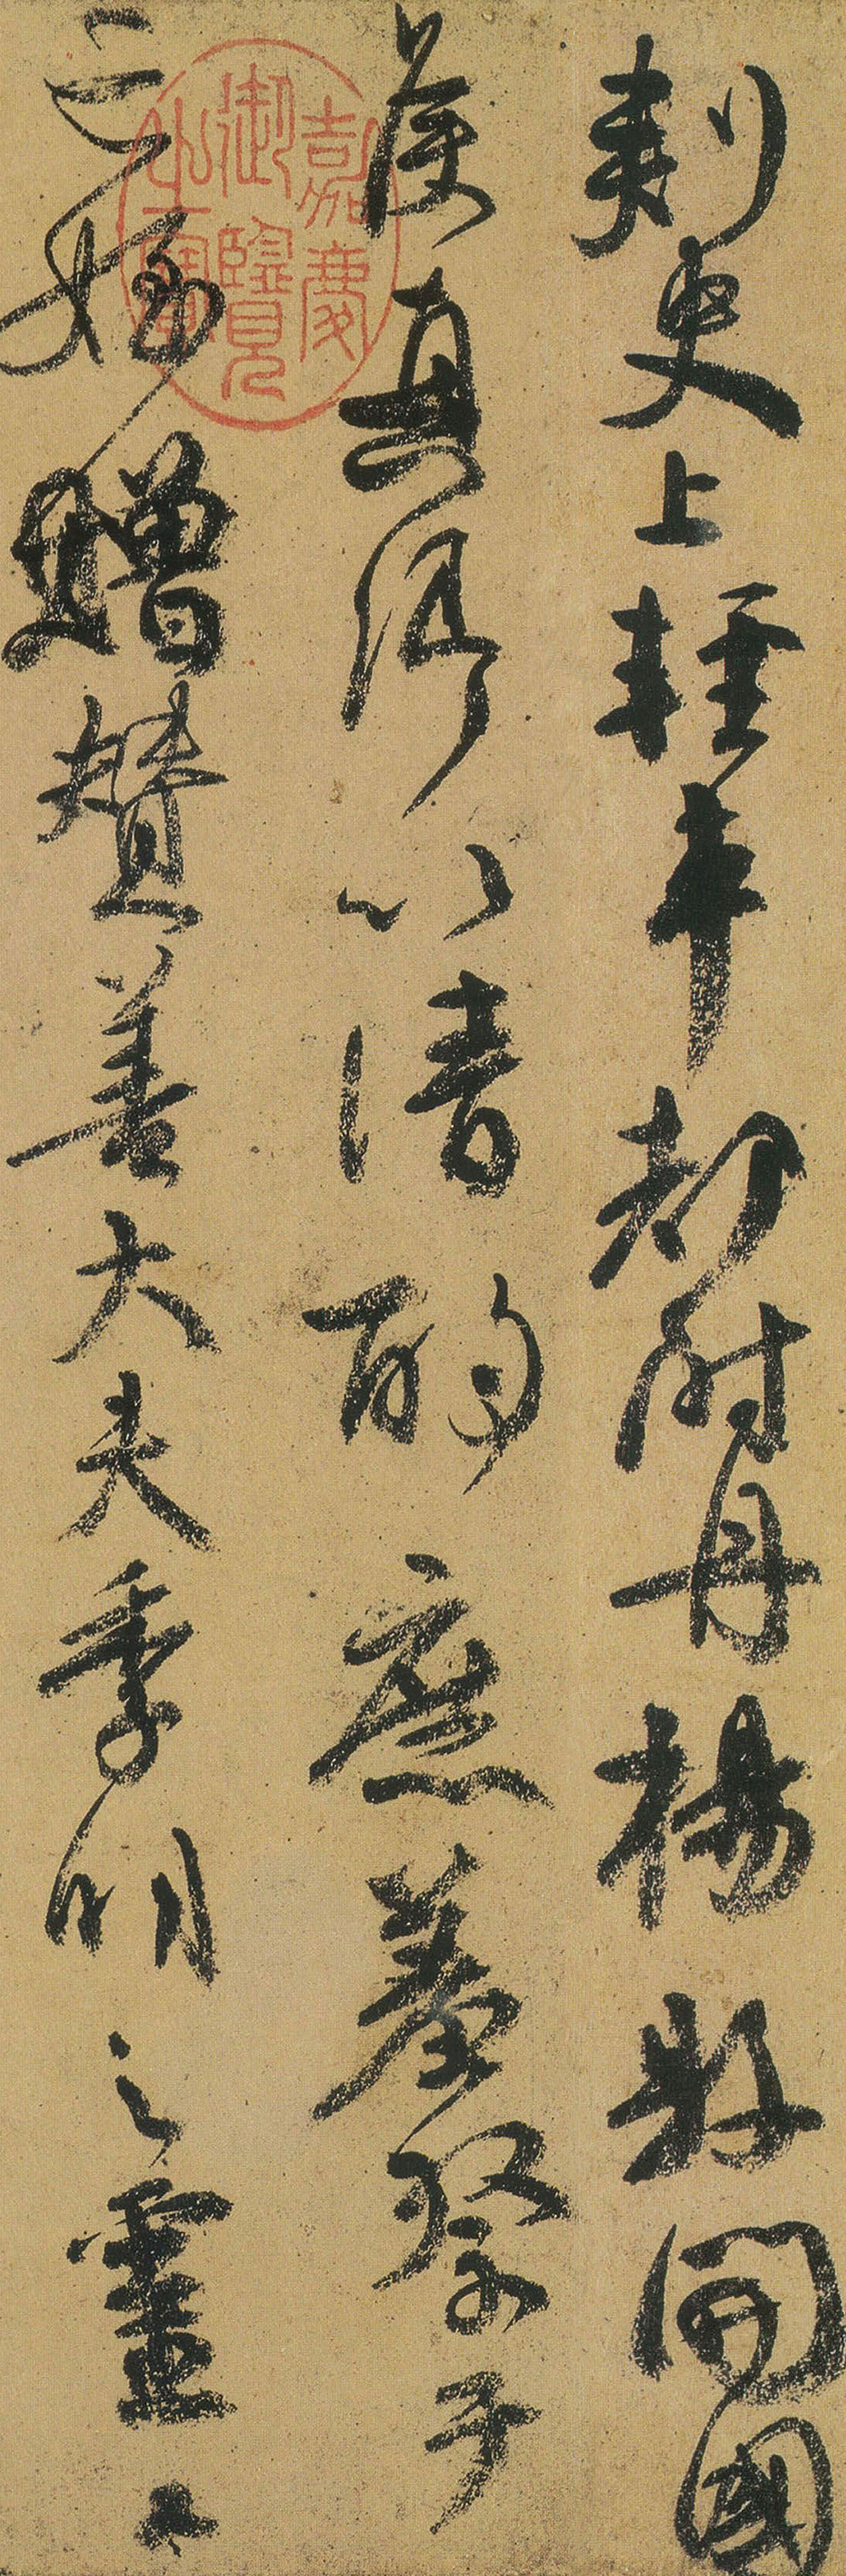 刺史上輕車都尉丹楊縣開國
侯真卿以清酌庶羞祭于
亡姪贈贊善大夫季明之靈
嘉慶御覽之寶